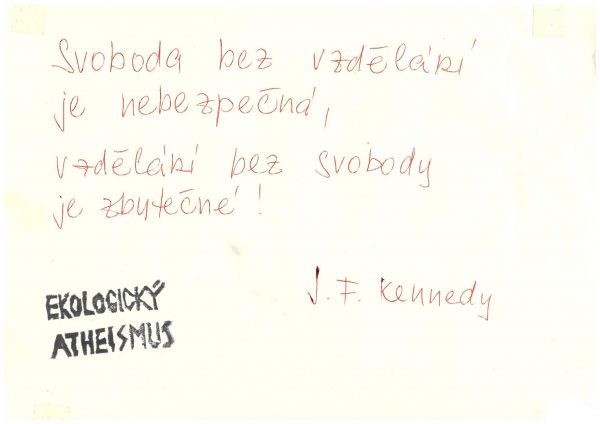 Svoboda bez vzdělání
je nebezpečná,
vzdělání bez svobody
je zbytečné!
J. F. Kennedy
EKOLOGICKÝ
ATHEISMUS